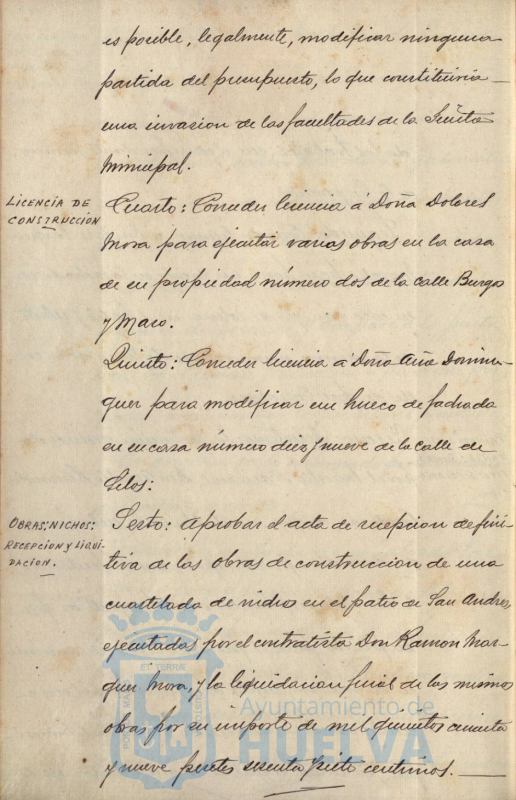 es posible, legalmente, modificar ninguna
partida del presupuesto, lo que constituiria
una invasion de las facultades de la Junta
Municipal.
LICENCIA DE
CONSTRUCCIÓN
Cuarto: Conceder licencia á Doña Dolores
Mora para ejecutar varias obras en la casa
de su propiedad número dos de la calle Burgos
y Mazo.
Quinto: Conceder licencia á Doña Ana Domin-
guez para modificar un hueco de fachada
en su casa número diez y nueve de la calle de
Silos:
OBRAS; NICHOS:
RECEPCION Y LIQUI-
DACION.
Sexto: Aprobar el acta de recepcion defini-
tiva de las obras de construccion de una
cuartelada de nichos en el patio de San Andres,
ejecutadas por el contratista Don Ramon Mar-
quez Mora, y la liquidacion final de las mismas
obras por su importe de mil quinientos cincuenta
y nueve pesetas sesenta y siete centimos.
Ayuntamiento de
HUELVA